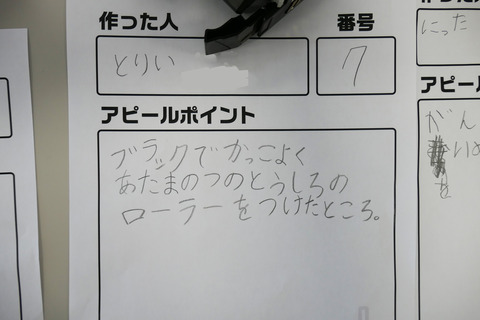 作った人
番号
とりい
7
アピールポイント
ブラックでかっこよく
あたまのつのとうしろの
ローラーをつけたところ。
にった
がん
いめ
を